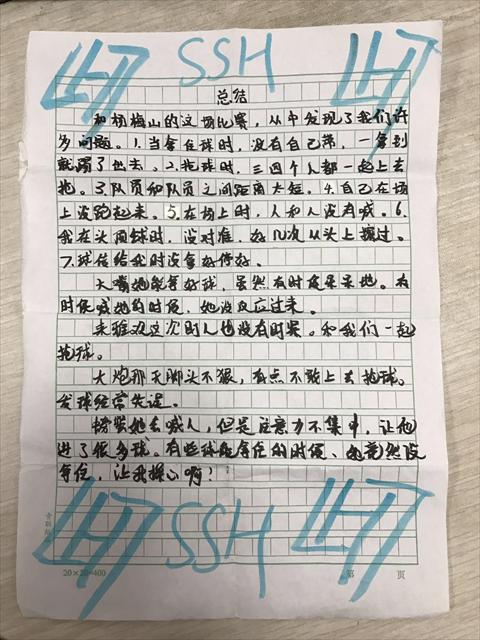 SSH
总结
和杨梅山的这场比赛，从中发现了我们许
多问题。1.当拿住球时，没有自己带，一拿到
就踢了出去。2.抢球时，三四个人都一起上去
抢。3.队员和队员之间距离太短。4.自己在场
上没跑起来。5.在场上时，人和人没有喊。6.
我在头顶球时，没对准，好几次从头上擦过。
7.球传给我时没拿好停好。
大嘴她能拿好球，虽然有时候呆呆地。有
时候喊她的时候，她没反应过来。
这次盯人也没有盯紧。和我们一起
抢球。
大炮那天脚头不狠，有点不敢上去抢球。
发球经常失误。
她去喊人，但是注意力不集中，让他
进了很多球。有些球能拿住的时候，她竟然没
拿住，让我操心啊！
SSH
20×20=400
第 页